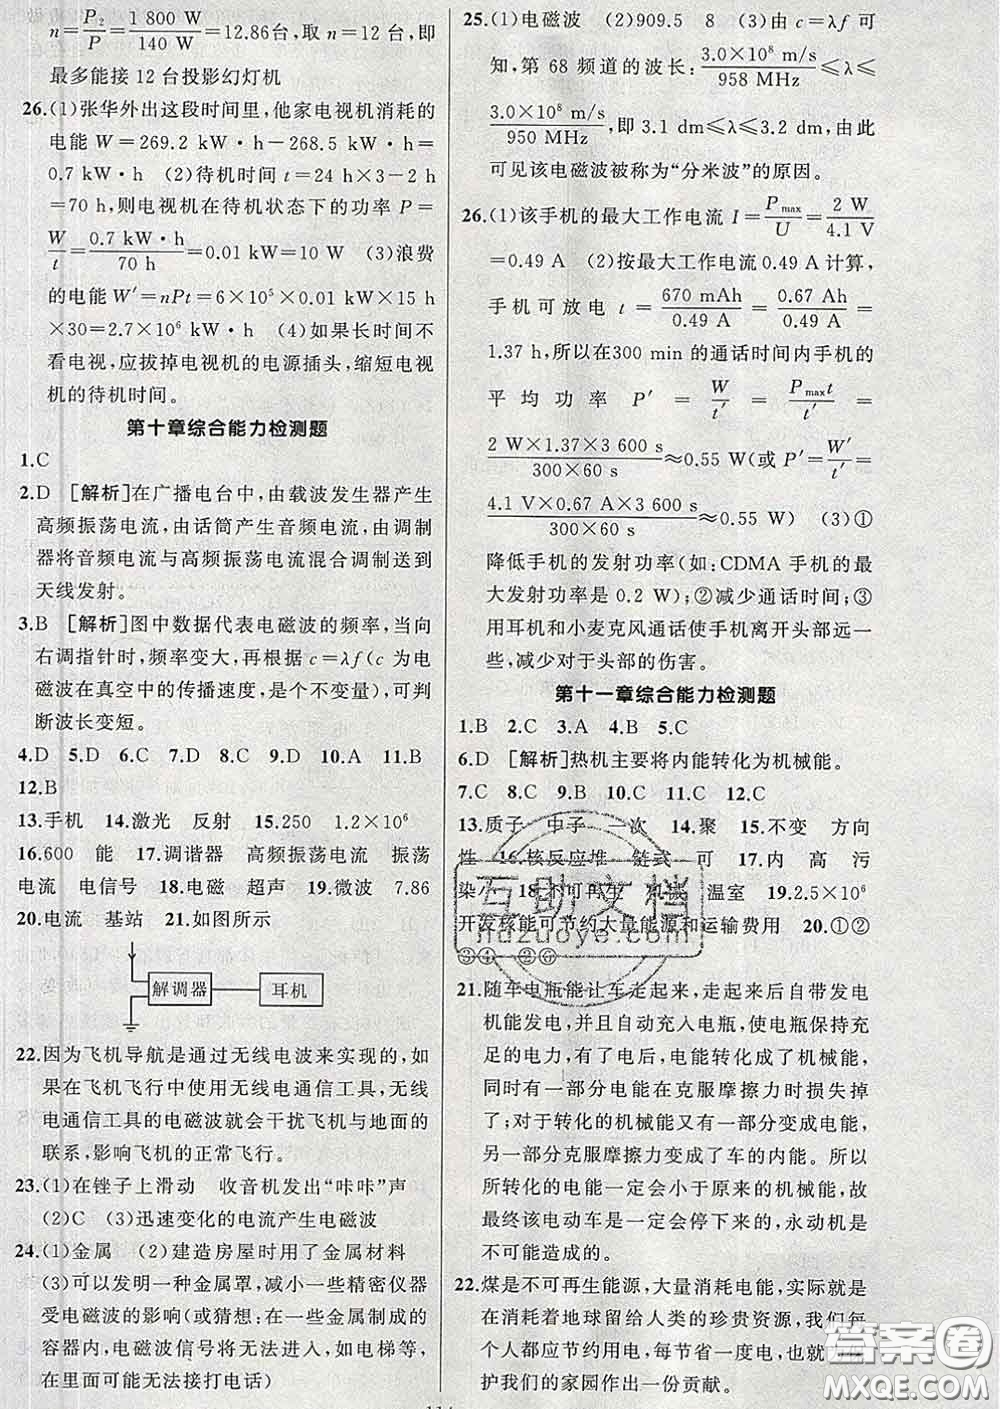 n=P₂/P=1 800 W/140 W=12.86台,取 n=12台,即
最多能接 12 台投影幻灯机
26.(1)张华外出这段时间里,他家电视机消耗的
电能 W=269.2 kW·h-268.5 kW·h=
0.7 kW·h (2)待机时间 t=24 h×3-2 h
=70 h,则电视机在待机状态下的功率 P=
W/t=0.7 kW·h/70 h=0.01 kW=10 W (3)浪费
的电能 W′=nPt=6×10⁵×0.01 kW×15 h
×30=2.7×10⁶ kW·h (4)如果长时间不
看电视,应拔掉电视机的电源插头,缩短电视
机的待机时间。
第十章综合能力检测题
1.C
2.D [解析]在广播电台中,由载波发生器产生
高频振荡电流,由话筒产生音频电流,由调制
器将音频电流与高频振荡电流混合调制送到
天线发射。
3.B [解析]图中数据代表电磁波的频率,当向
右调指针时,频率变大,再根据 c=λf(c 为电
磁波在真空中的传播速度,是个不变量),可判
断波长变短。
4.D 5.D 6.C 7.D 8.C 9.D 10.A 11.B
12.B
13.手机 14.激光 反射 15.250 1.2×10⁶
16.600 能 17.调谐器 高频振荡电流 振荡
电流 电信号 18.电磁 超声 19.微波 7.86
20.电流 基站 21.如图所示
解调器 耳机
22.因为飞机导航是通过无线电波来实现的,如
果在飞机飞行中使用无线电通信工具,无线
电通信工具的电磁波就会干扰飞机与地面的
联系,影响飞机的正常飞行。
23.(1)在锉子上滑动 收音机发出“咔咔”声
(2)C (3)迅速变化的电流产生电磁波
24.(1)金属 (2)建造房屋时用了金属材料
(3)可以发明一种金属罩,减小一些精密仪器
受电磁波的影响(或猜想:在一些金属制成的
容器内,电磁波信号将无法进入,如电梯等,
在里面可能无法接打电话)
25.(1)电磁波 (2)909.5 8 (3)由 c=λf 可
知,第 68 频道的波长:3.0×10⁸ m/s/958 MHz≤λ≤
3.0×10⁸ m/s/950 MHz,即 3.1 dm≤λ≤3.2 dm,由此
可见该电磁波被称为“分米波”的原因。
26.(1)该手机的最大工作电流 I=Pmax/U=2 W/4.1 V
=0.49 A (2)按最大工作电流 0.49 A 计算,
手机可放电 t=670 mAh/0.49 A=0.67 Ah/0.49 A=
1.37 h,所以在300 min 的通话时间内手机的
平均功率 P′=W/t′=Pmaxt/t′=
2 W×1.37×3 600 s/300×60 s≈0.55 W(或 P′=W′/t′=
4.1 V×0.67 A×3 600 s/300×60 s≈0.55 W) (3)①
降低手机的发射功率(如:CDMA 手机的最
大发射功率是 0.2 W);②减少通话时间;③
用耳机和小麦克风通话使手机离开头部远一
些,减少对于头部的伤害。
第十一章综合能力检测题
1.B 2.C 3.A 4.B 5.C
6.D [解析]热机主要将内能转化为机械能。
7.C 8.C 9.B 10.C 11.C 12.C
13.质子 中子 一次 14.聚 15.不变 方向
性 16.核反应堆 链式 可 17.内 高 污
染 18.不可再生 温室 19.2.5×10⁶
开发核能可节约大量能源和运输费用 20.①②
③④ ②⑤
21.随车电瓶能让车走起来,走起来后自带发电
机能发电,并且自动充入电瓶,使电瓶保持充
足的电力,有了电后,电能转化成了机械能,
同时有一部分电能在克服摩擦力时损失掉
了;对于转化的机械能又有一部分变成电能,
另一部分克服摩擦力变成了车的内能。所以
所转化的电能一定会小于原来的机械能,故
最终该电动车是一定会停下来的,永动机是
不可能造成的。
22.煤是不可再生能源,大量消耗电能,实际就是
在消耗着地球留给人类的珍贵资源,我们每
个人都应节约用电,每节省一度电,也就
护我们的家园作出一份贡献。
互助文档
hdzuoye.com
答案圈
MXQE.COM